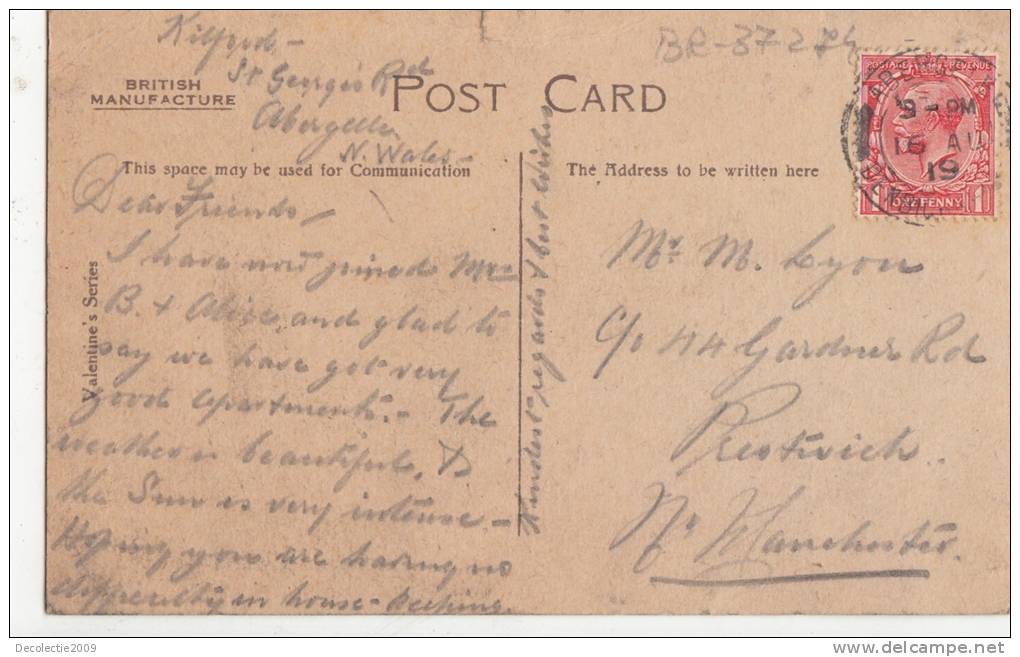 BR-37274
Kilford -
St Georges Rd
Abergele
N. Wales -
BRITISH
MANUFACTURE
POST CARD
This space may be used for Communication
The Address to be written here
Valentine's Series
POSTAGE REVENUE
ONE PENNY
9 - PM
16 AU
19
Dear Friends -
I have now joined Mrs
B. & Alice, and glad to
say we have got very
good apartments. - The
weather is beautiful, &
the Sun is very intense -
Hoping you are having no
difficulty in house-keeping.
Kindest regards & best wishes
Mr M. Lyon
C/o 44 Gardner Rd
Prestwich.
Nr Manchester.
Decolectie2009
www.delcampe.net